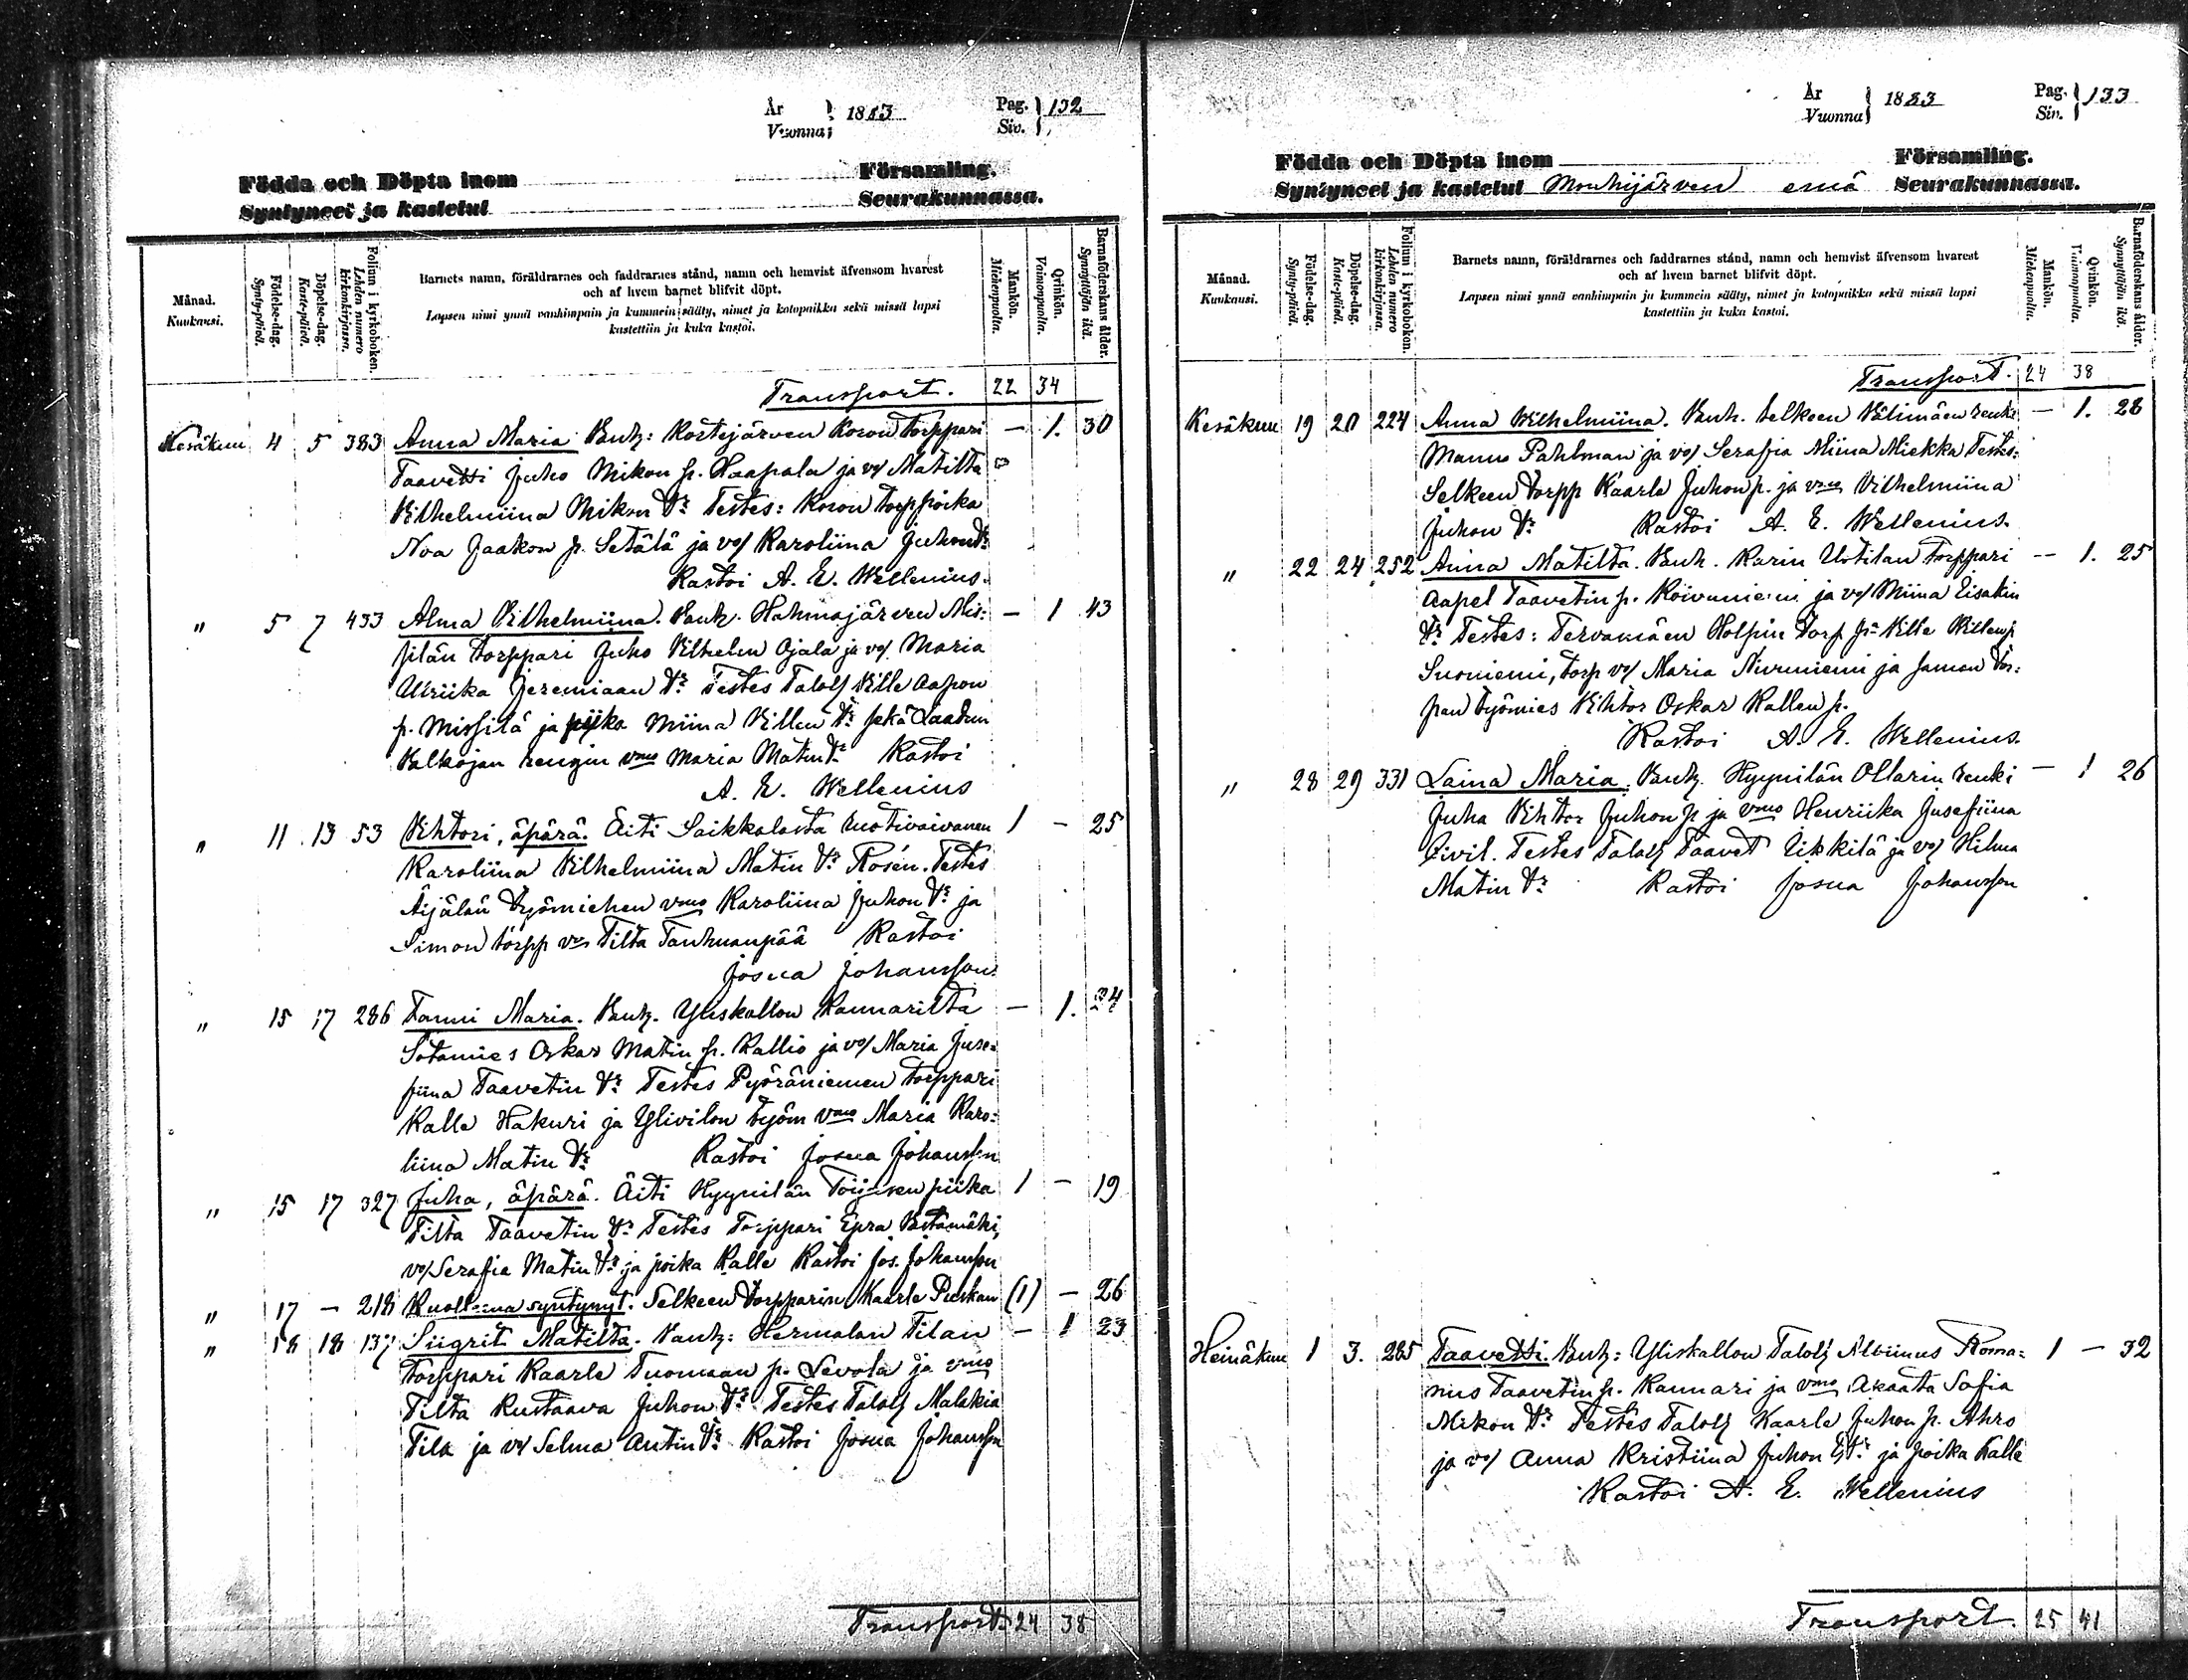 År
Vuonna
1883
Pag.
Siv.
132
Födda och Döpta inom Församling.
Syntyneet ja kastetut Seurakunnassa.
Månad.
Kuukausi.
Födelse-dag.
Synty-päivä.
Döpelse-dag.
Kaste-päivä.
Folium i kyrkoboken.
Lehden numero kirkonkirjassa.
Barnets namn, föräldrarnes och faddrarnes stånd, namn och hemvist äfvensom hvarest
och af hvem barnet blifvit döpt.
Lapsen nimi ynnä vanhimpain ja kummein sääty, nimet ja kotopaikka sekä missä lapsi
kastettiin ja kuka kastoi.
Mankön.
Miehenpuolta.
Qvinkön.
Vaimonpuolta.
Barnaföderskans ålder.
Synnyttäjän ikä.
Transport. 22 34
Kesäkuu 4 5 383 Anna Maria Vanh: Kortejärven Koron torppari — 1. 30
Taavetti Juho Mikon p. Haapala ja vo/ Matilta
Vilhelmiina Mikon tr Testes: Koron torp poika
Noa Jaakon p. Setälä ja vo/ Karoliina Juhon tr
Kastoi A. E. Wellenius.
" 5 7 433 Alma Vilhelmiina. Vanh. Hahmajärven Mis= — 1 43
silän torppari Juho Vilhelm Ojala ja vo/ Maria
Ulriika Jeremiaan tr Testes Talol/ Ville Aapon
p. Missilä ja piika Miina Villen tr sekä Laadun
Valkojan rengin vmo Maria Matin tr Kastoi
A. E. Wellenius
" 11 13 53 Vihtori, äpärä. Äiti Saikkalasta ruotivaivanen 1 — 25
Karoliina Vilhelmiina Matin tr Rosén. Testes
Äijälän työmiehen vmo Karoliina Juhon tr ja
Simon torpp vo Tilta Tanhuanpää Kastoi
Josua Johansson.
" 15 17 286 Fanni Maria. Vanh. Yliskallon Kannarilta — 1. 24
Sotamies Oskar Matin p. Kallio ja vo/ Maria Juse=
fiina Taavetin tr Testes Pyöräniemen torppari
Kalle Hakuri ja Ylivilon työm vmo Maria Karo=
liina Matin tr Kastoi Josua Johansson
" 15 17 327 Juha, äpärä. Äiti Hyynilän piika 1 — 19
Tilta Taavetin tr Testes Torppari Epra
vo/ Serafia Matin tr ja poika Kalle Kastoi Jos. Johansson
" 17 — 218 Kuolleena syntynyt. Selkeen torpparin Kaarle (1) — 26
" 18 18 137 Siigrit Matilta. Vanh: Hermalan Tilan — 1 23
torppari Kaarle Tuomaan p. Levola ja vmo
Tilta Kustaava Juhon tr Testes Talol/ Malakia
Tila ja vo/ Selma Antin tr Kastoi Josua Johansson
Transport 24 38
År
Vuonna
1883
Pag.
Siv.
133
Födda och Döpta inom Församling.
Syntyneet ja kastetut Mouhijärven emä Seurakunnassa.
Månad.
Kuukausi.
Födelse-dag.
Synty-päivä.
Döpelse-dag.
Kaste-päivä.
Folium i kyrkoboken.
Lehden numero kirkonkirjassa.
Barnets namn, föräldrarnes och faddrarnes stånd, namn och hemvist äfvensom hvarest
och af hvem barnet blifvit döpt.
Lapsen nimi ynnä vanhimpain ja kummein sääty, nimet ja kotopaikka sekä missä lapsi
kastettiin ja kuka kastoi.
Mankön.
Miehenpuolta.
Qvinkön.
Vaimonpuolta.
Barnaföderskans ålder.
Synnyttäjän ikä.
Transport. 24 38
Kesäkuu 19 20 224 Anna Wilhelmiina. Vanh. Selkeen Välimäen renki — 1. 28
Manu Pahlman ja vo/ Serafia Miina Miekka Testes:
Selkeen torpp Kaarle Juhon p. ja vmo Vilhelmiina
Juhon tr Kastoi A. E. Wellenius.
" 22 24 252 Anna Matilta. Vanh. Karin Uotilan torppari — 1. 25
Aapel Taavetin p. Koivuniemi ja vo/ Miina Eisakin
tr Testes: Tervamäen Holpin torp pa Ville Villen p
Suoniemi, torp vo/ Maria Nivuniemi ja saman tor=
pan työmies Vihtor Oskar Kallen p.
Kastoi A. E. Wellenius.
" 28 29 331 Laina Maria. Vanh. Hyynilän Ollarin renki — 1 26
Juha Vihtor Juhon p ja vmo Henriika Jusefiina
Civil. Testes Talol/ Taavet Uikkilä ja vo/ Hilma
Matin tr Kastoi Josua Johansson
Heinäkuu 1 3. 285 Taavetti. Vanh: Yliskallon Talol/ Albiinus Roma= 1 — 32
nus Taavetin p. Kannari ja vmo Akaata Sofia
Mikon tr Testes Talol/ Kaarle Juhon p. Ahro
ja vo/ Anna Kristiina Juhon tr ja poika Kalle
Kastoi A. E. Wellenius
Transport. 25 41